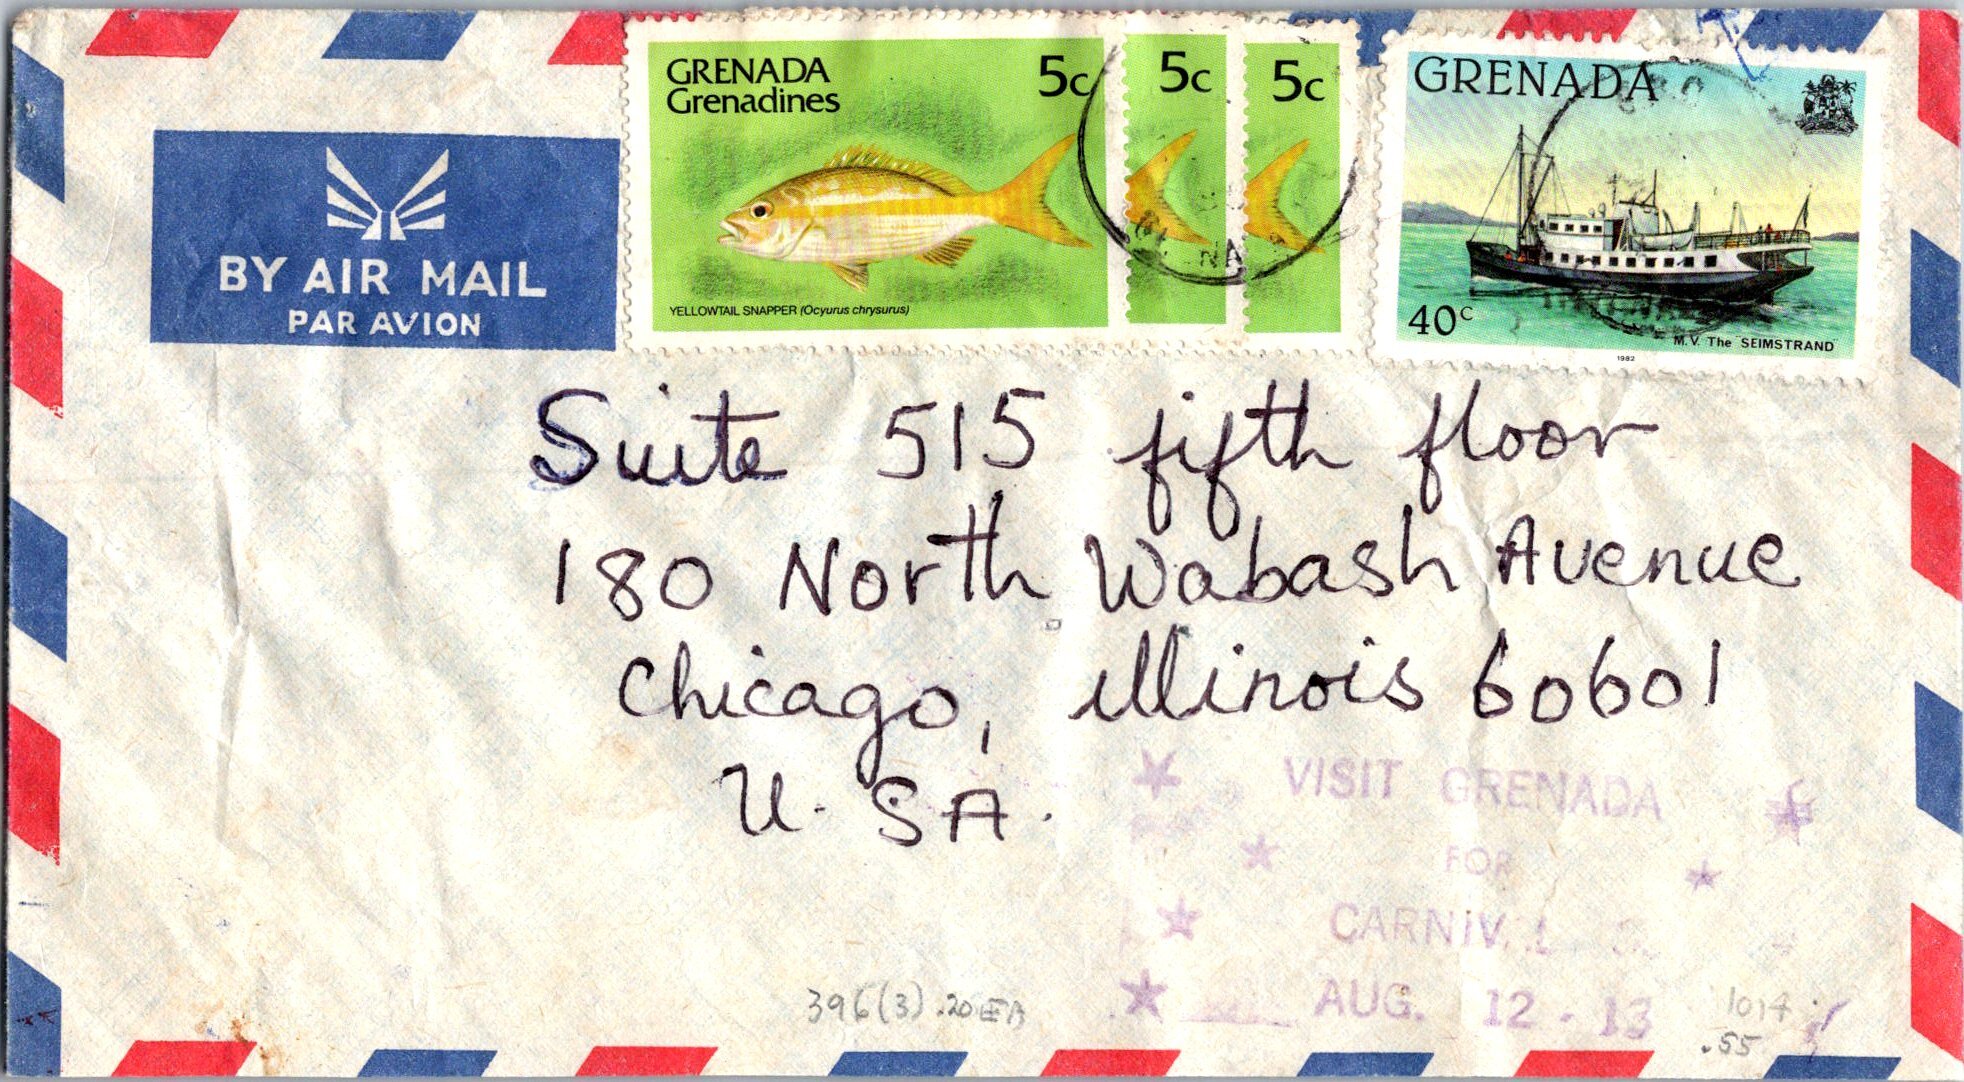 GRENADA
Grenadines
5c
5c
5c
YELLOWTAIL SNAPPER (Ocyurus chrysurus)
GRENADA
40c
M.V. The "SEIMSTRAND"
1982
BY AIR MAIL
PAR AVION
Suite 515 fifth floor
180 North Wabash Avenue
Chicago, illinois 60601
U.SA.
VISIT GRENADA
FOR
AUG. 12 - 13
396(3) .20EA
1014
.55